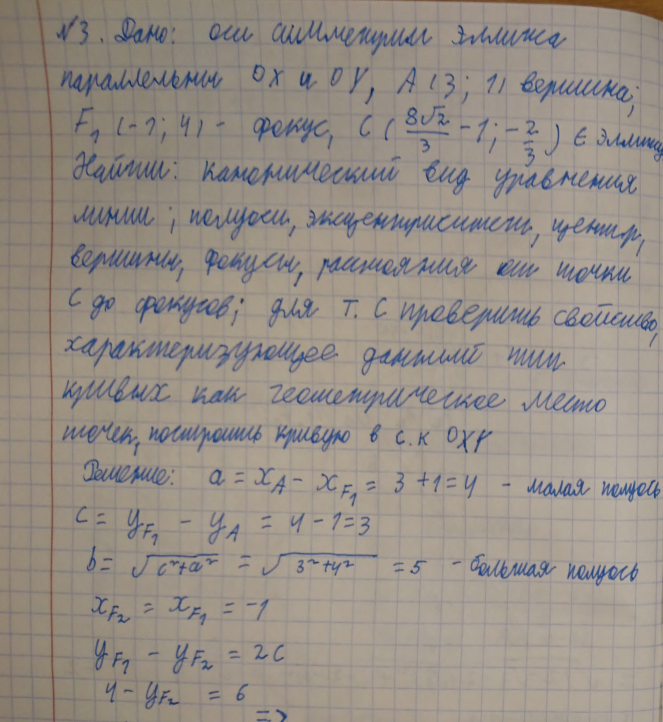 №3. Дано: оси симметрии эллипса
параллельны OX и OY, A(3; 1) вершина;
F₁(-1; 4) - фокус, C(8√2/3 - 1; -2/3) ∈ эллипсу
Найти: канонический вид уравнения
линии; полуоси, эксцентриситет, центр,
вершины, фокусы, расстояния от точки
C до фокусов; для т. C проверить свойство,
характеризующее данный тип
кривых как геометрическое место
точек, построить кривую в с.к OXY
Решение: a = x_A - x_F₁ = 3 + 1 = 4 - малая полуось
c = y_F₁ - y_A = 4 - 1 = 3
b = √(c² + a²) = √(3² + 4²) = 5 - большая полуось
x_F₂ = x_F₁ = -1
y_F₁ - y_F₂ = 2c
4 - y_F₂ = 6
=>